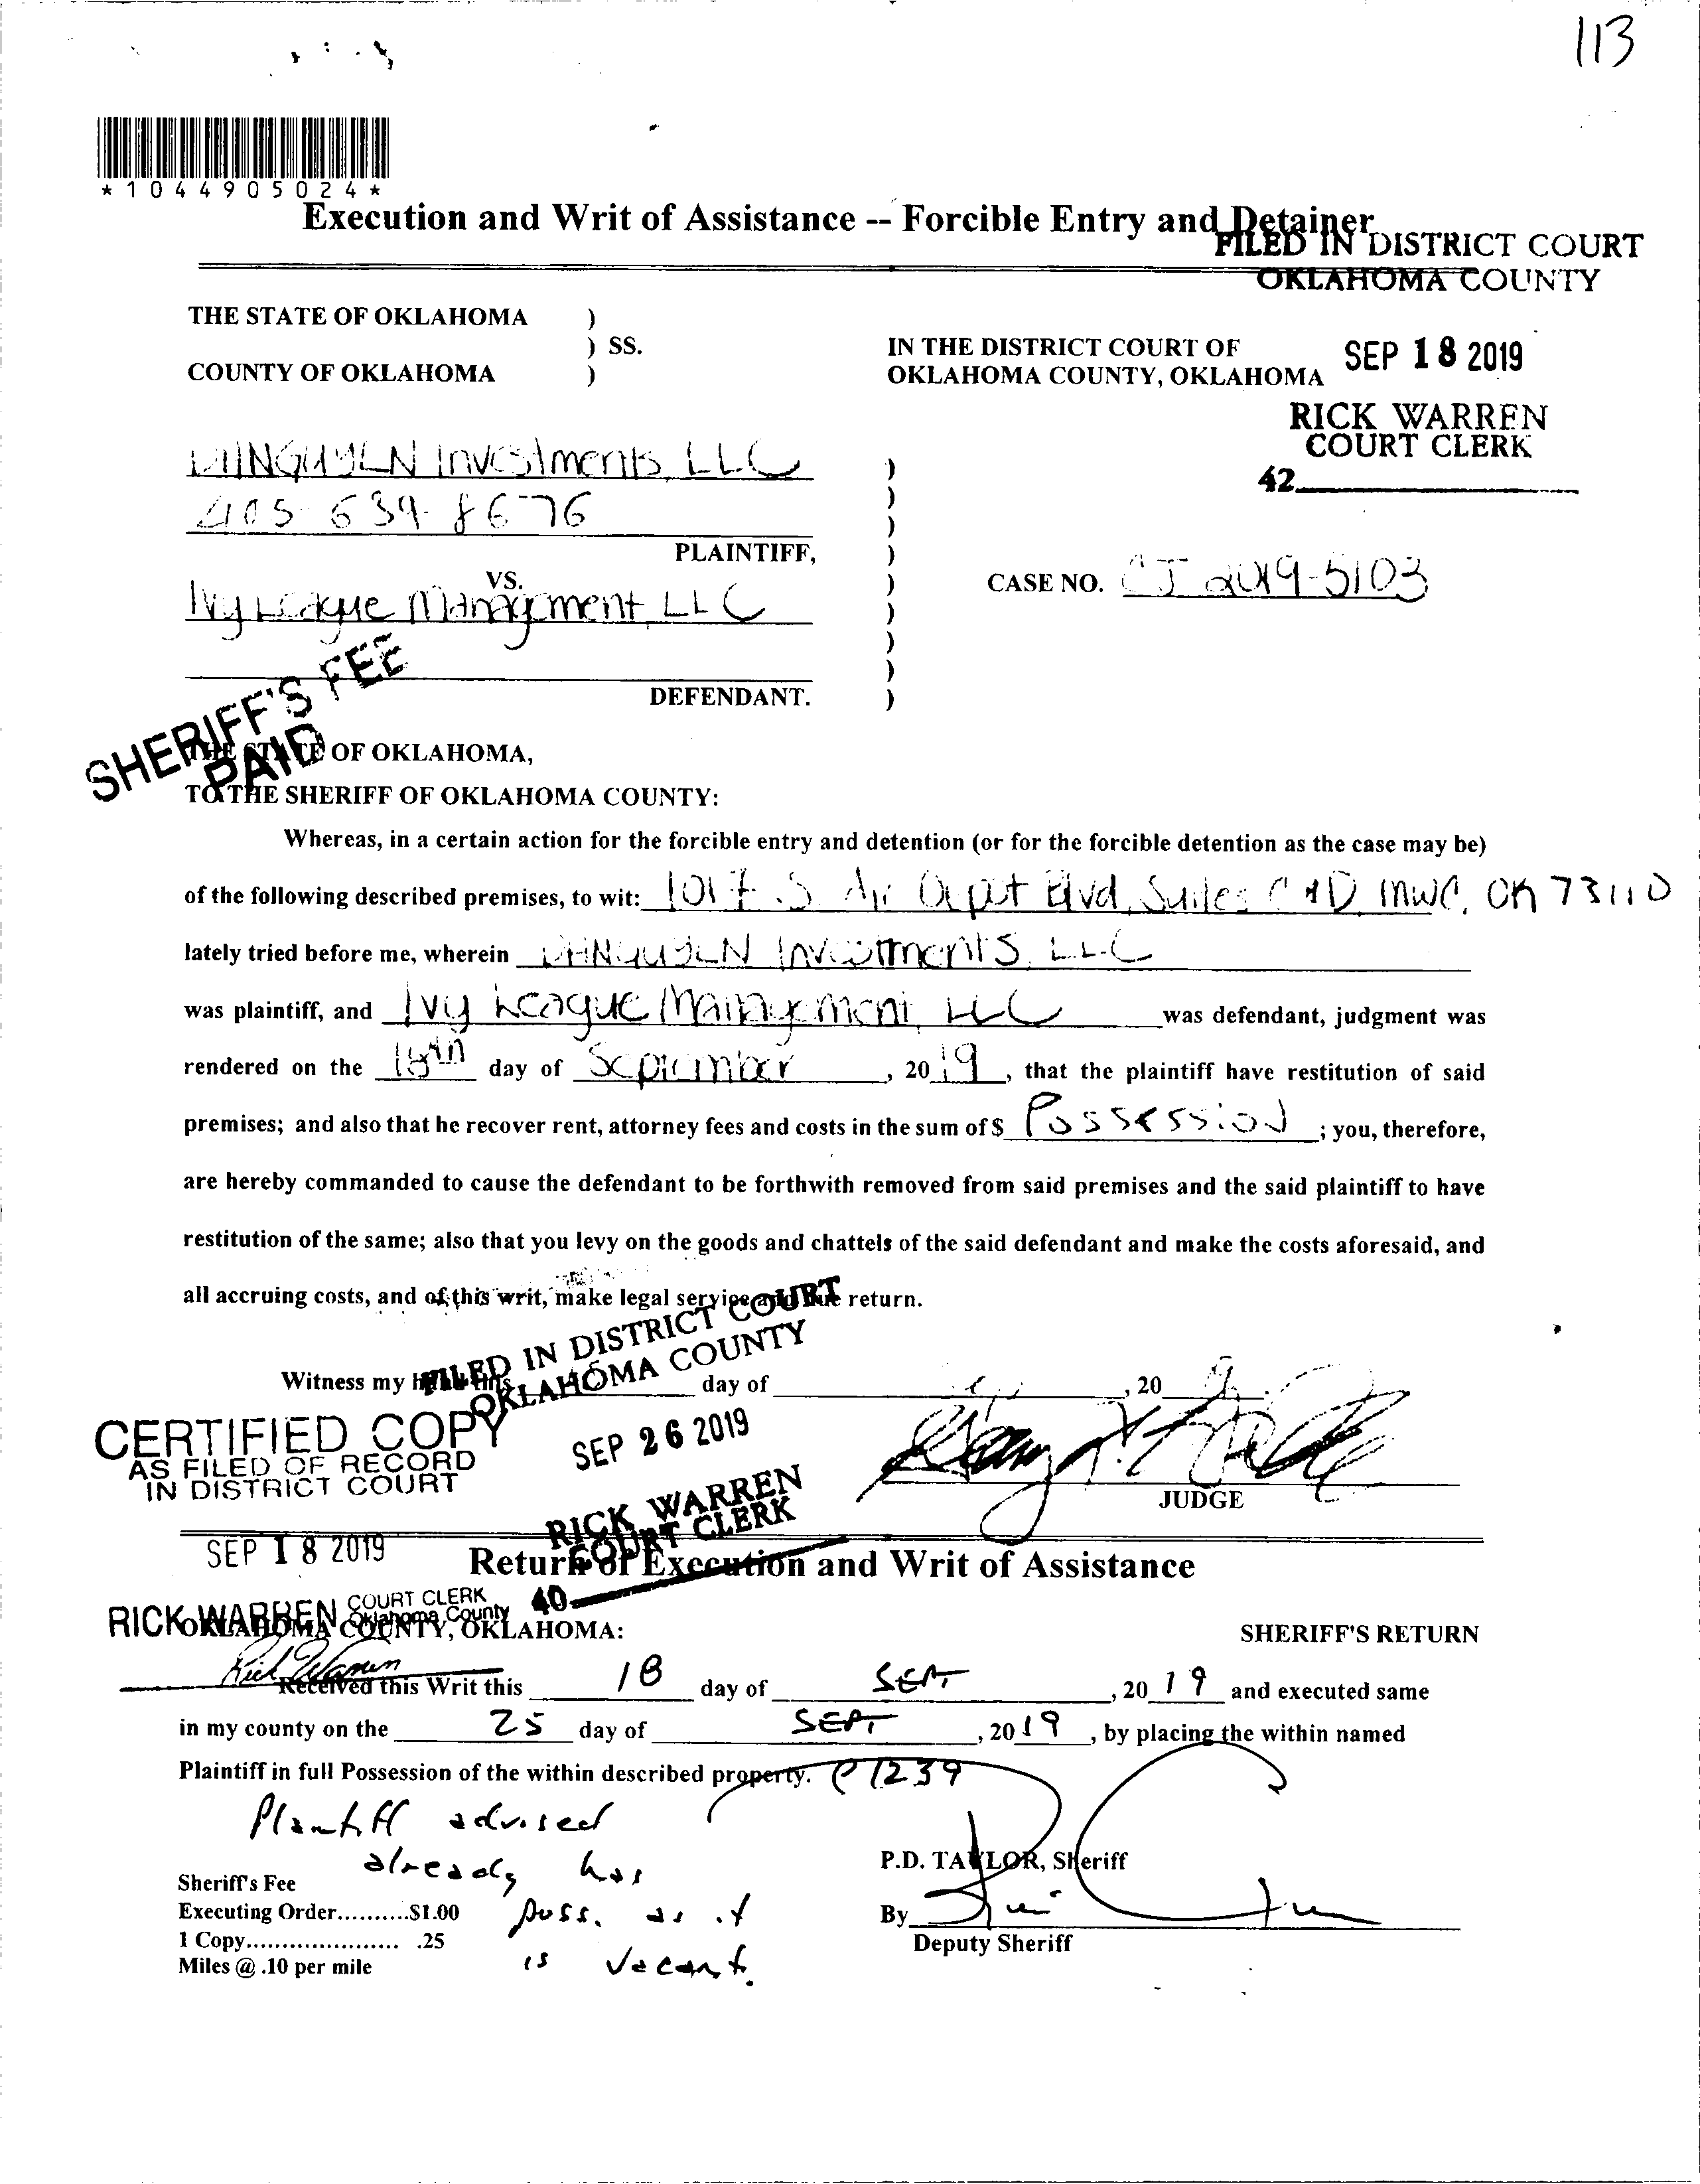 113
*1044905024*
Execution and Writ of Assistance -- Forcible Entry and Detainer
FILED IN DISTRICT COURT
OKLAHOMA COUNTY
THE STATE OF OKLAHOMA )
) SS.
COUNTY OF OKLAHOMA )
IN THE DISTRICT COURT OF
OKLAHOMA COUNTY, OKLAHOMA
SEP 18 2019
RICK WARREN
COURT CLERK
42
Investments, LLC
405-639-8676
PLAINTIFF,
VS.
Ivy League Management, LLC
DEFENDANT.
CASE NO. CJ 2019-5103
SHERIFF'S FEE
PAID
THE STATE OF OKLAHOMA,
TO THE SHERIFF OF OKLAHOMA COUNTY:
Whereas, in a certain action for the forcible entry and detention (or for the forcible detention as the case may be)
of the following described premises, to wit: 1017 S. Air Depot Blvd, Suites C & D MWC, OK 73110
lately tried before me, wherein Investments, LLC
was plaintiff, and Ivy League Management, LLC was defendant, judgment was
rendered on the 18th day of September, 2019, that the plaintiff have restitution of said
premises; and also that he recover rent, attorney fees and costs in the sum of $ Possession ; you, therefore,
are hereby commanded to cause the defendant to be forthwith removed from said premises and the said plaintiff to have
restitution of the same; also that you levy on the goods and chattels of the said defendant and make the costs aforesaid, and
all accruing costs, and of this writ, make legal service and due return.
FILED IN DISTRICT COURT
OKLAHOMA COUNTY
Witness my hand this day of , 20
CERTIFIED COPY
AS FILED OF RECORD
IN DISTRICT COURT
SEP 26 2019
RICK WARREN
COURT CLERK
40
JUDGE
SEP 18 2019
Return of Execution and Writ of Assistance
RICK WARREN COURT CLERK
Oklahoma County
OKLAHOMA COUNTY, OKLAHOMA:
SHERIFF'S RETURN
Rick Warren
Received this Writ this 18 day of SEPT, 2019 and executed same
in my county on the 25 day of SEPT, 2019, by placing the within named
Plaintiff in full Possession of the within described property. @ 1239
Plantiff advised
already has
poss. as it
is vacant.
P.D. TAYLOR, Sheriff
Sheriff's Fee
Executing Order..........$1.00
1 Copy..................... .25
Miles @ .10 per mile
By
Deputy Sheriff